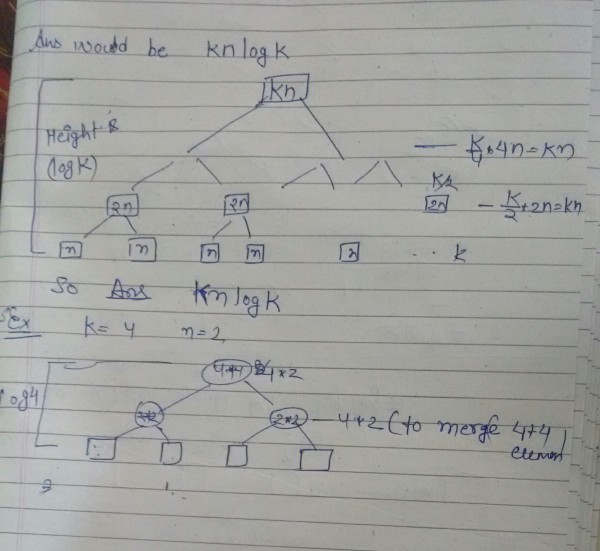 Ans would be kn log k
kn
Height is
(log k)
— k/4 * 4n = kn
k/2
2n 2n 2n — k/2 * 2n = kn
n n n n n .. k
So Ans kn log k
Ex k = 4 n = 2
4+4 4*2
log4
2*2 2*2 — 4*2 (to merge 4+4
element)